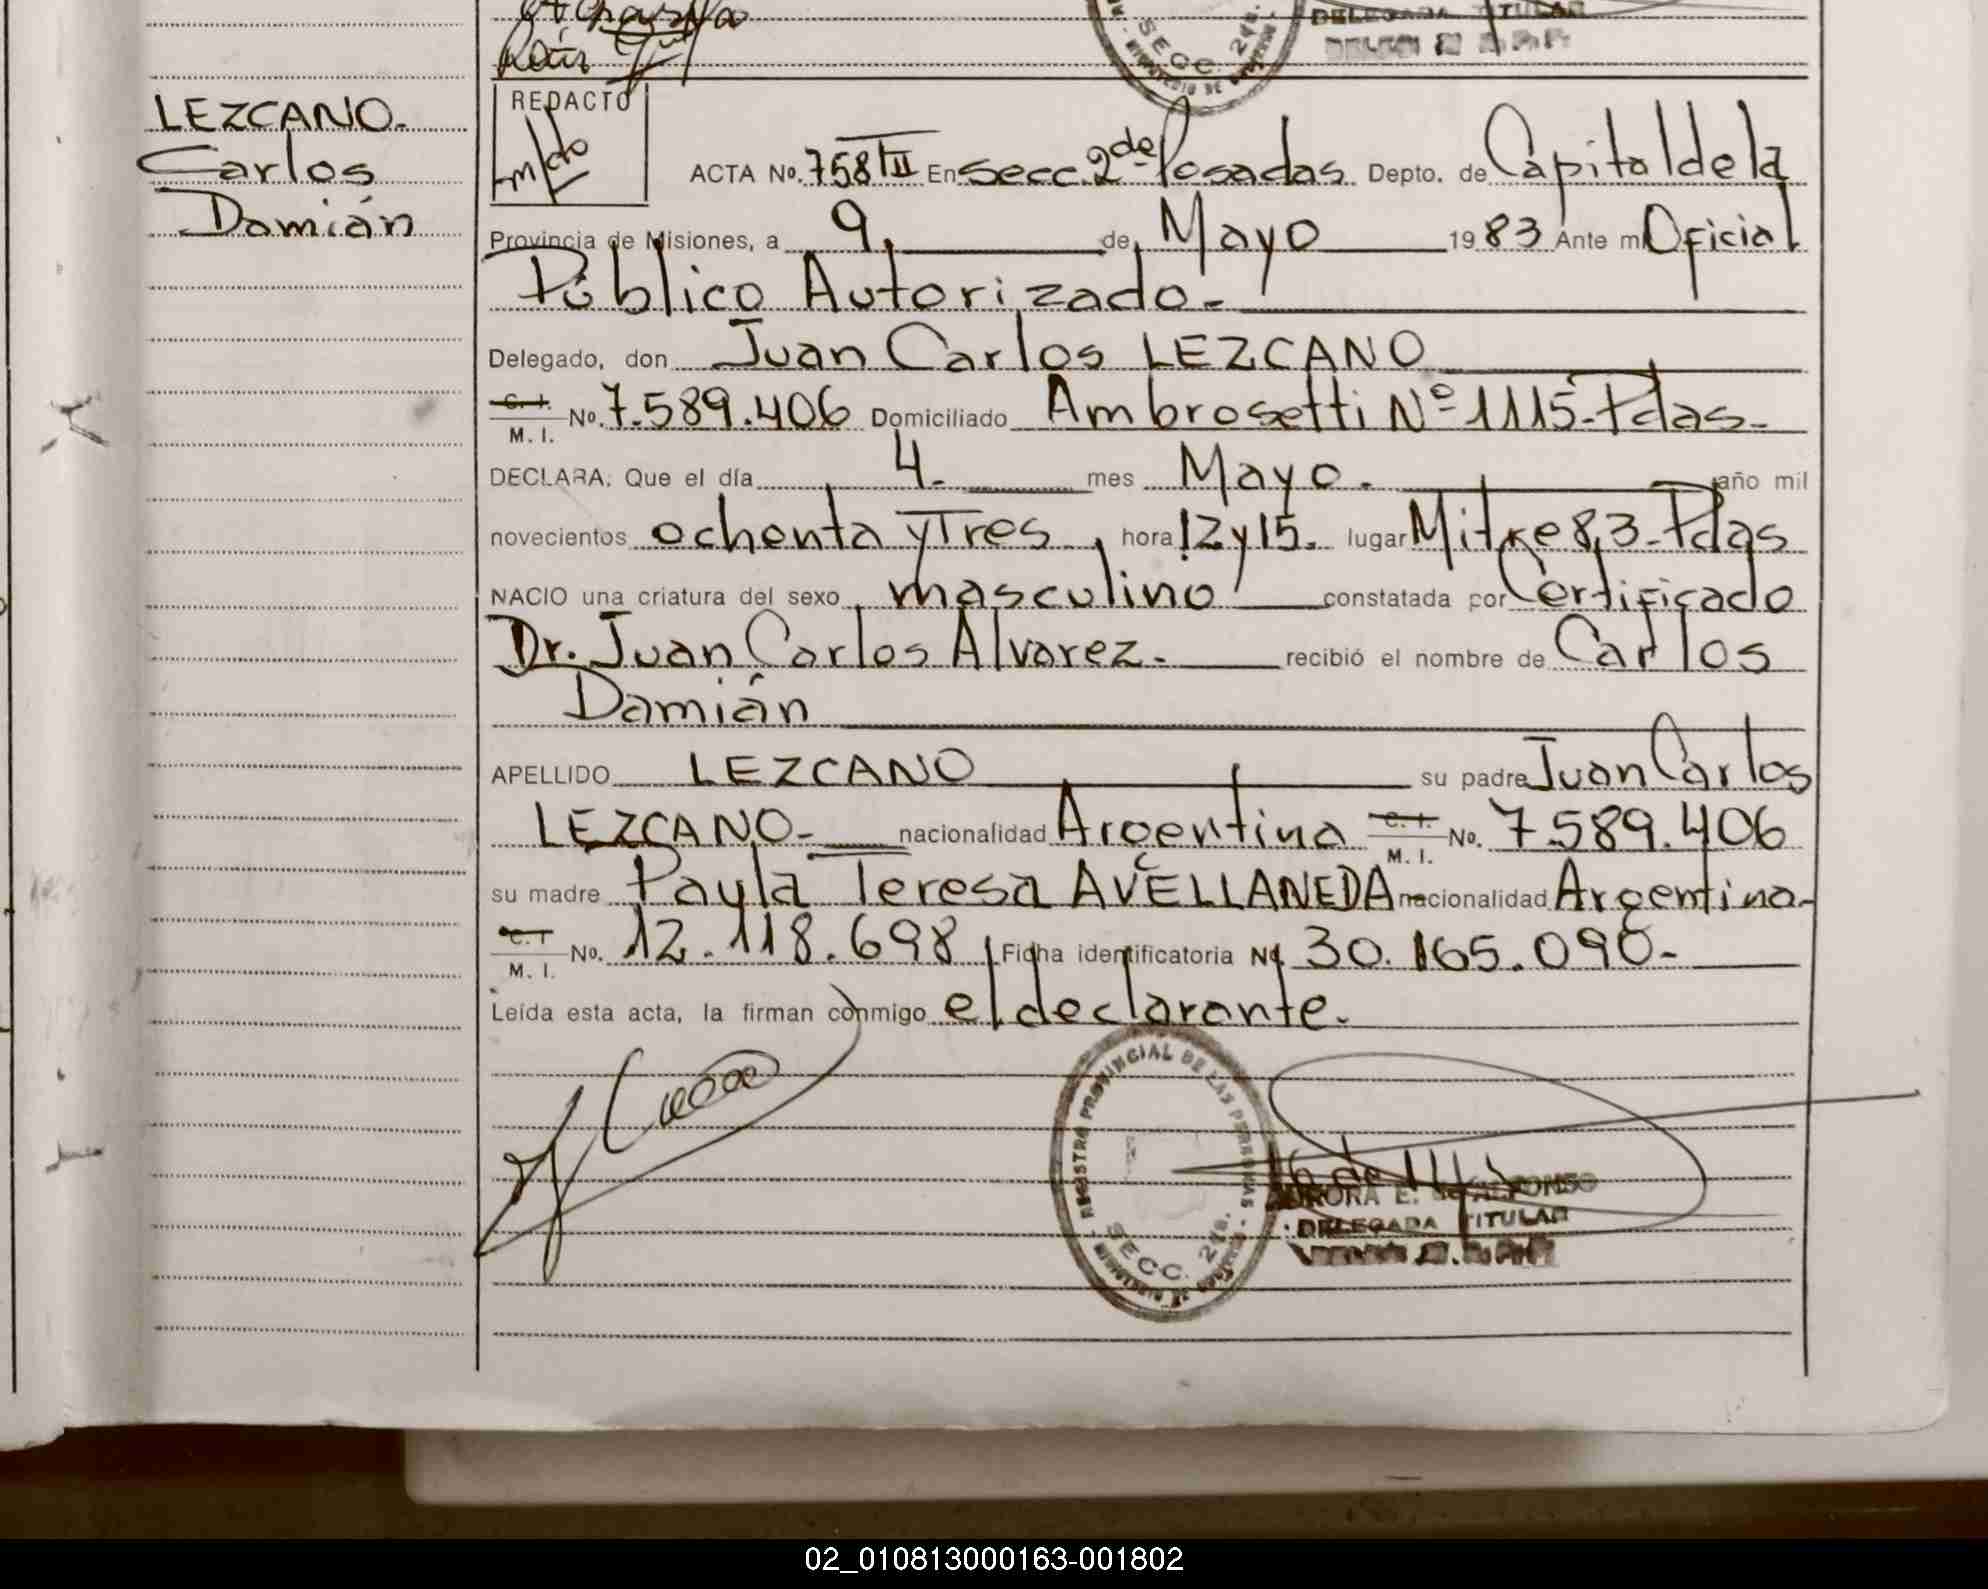 DELEGADA TITULAR
SECC. 2da.
LEZCANO.
Carlos
Damián
REDACTO
ACTA No. 758 TII En Secc. 2de Posadas Depto. de Capital de la
Provincia de Misiones, a 9. de Mayo 1983 Ante mi Oficial
Público Autorizado.-
Delegado, don Juan Carlos LEZCANO
C. I.
M. I. No. 7.589.406 Domiciliado Ambrosetti Nº 1115-Pdas.-
DECLARA: Que el día 4. mes Mayo. año mil
novecientos ochenta y Tres, hora 12 y 15. lugar Mitre 83-Pdas
NACIO una criatura del sexo masculino constatada por Certificado
Dr. Juan Carlos Alvarez. recibió el nombre de Carlos
Damián
APELLIDO LEZCANO su padre Juan Carlos
LEZCANO- nacionalidad Argentina C. I.
M. I. No. 7.589.406
su madre Paula Teresa AVELLANEDA nacionalidad Argentina-
C. I
M. I. No. 12.118.698 Ficha identificatoria Nº 30.165.090-
Leída esta acta, la firman conmigo el declarante.
REGISTRO PROVINCIAL DE LAS PERSONAS
SECC. 2da.
AURORA E. ALFONSO
DELEGADA TITULAR
02_010813000163-001802